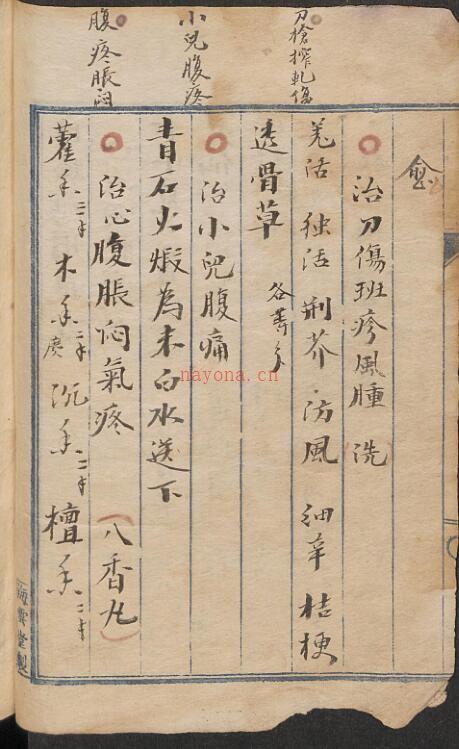 刀槍搾軋傷
小兒腹疼
腹疼脹悶
治刀傷班疹風腫 洗
羌活 独活 荆芥 防風 细辛 桔梗
透骨草 各等分
治小兒腹痛
青石火煅為末白水送下
治心腹脹悶氣疼 (八香丸)
藿香二キ 木香二キ 沉香二キ 檀香二キ
海雲堂製
nayona.cn